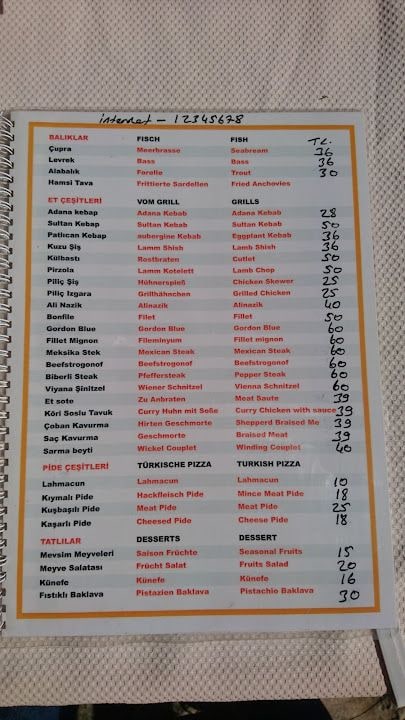 internet - 12345678
BALIKLAR FISCH FISH TL.
Çupra Meerbrasse Seabream 36
Levrek Bass Bass 36
Alabalık Forelle Trout 30
Hamsi Tava Frittierte Sardellen Fried Anchovies
ET ÇEŞİTLERİ VOM GRILL GRILLS
Adana kebap Adana Kebab Adana Kebab 28
Sultan Kebap Sultan Kebab Sultan Kebab 50
Patlıcan Kebap aubergine Kebab Eggplant Kebab 36
Kuzu Şiş Lamm Shish Lamb Shish 36
Külbastı Rostbraten Cutlet 50
Pirzola Lamm Kotelett Lamb Chop 50
Piliç Şiş Hühnerspieß Chicken Skewer 25
Piliç Izgara Grillhähnchen Grilled Chicken 25
Ali Nazik Alinazik Alinazik 40
Bonfile Filet Fillet 50
Gordon Blue Gordon Blue Gordon Blue 60
Fillet Mignon Fileminyum Fillet mignon 60
Meksika Stek Mexican Steak Mexican Steak 60
Beefstrogonef Beefstrogonof Beefstrogonof 60
Biberli Steak Pfeffersteak Pepper Steak 60
Viyana Şinitzel Wiener Schnitzel Vienna Schnitzel 60
Et sote Zu Anbraten Meat Saute 39
Köri Soslu Tavuk Curry Huhn mit Soße Curry Chicken with sauce 39
Çoban Kavurma Hirten Geschmorte Shepperd Braised Me 39
Saç Kavurma Geschmorte Braised Meat 39
Sarma beyti Wickel Couplet Winding Couplet 40
PİDE ÇEŞİTLERİ TÜRKISCHE PIZZA TURKISH PIZZA
Lahmacun Lahmacun Lahmacun 10
Kıymalı Pide Hackfleisch Pide Mince Meat Pide 18
Kuşbaşılı Pide Meat Pide Meat Pide 25
Kaşarlı Pide Cheesed Pide Cheese Pide 18
TATLILAR DESSERTS DESSERT
Mevsim Meyveleri Saison Früchte Seasonal Fruits 15
Meyve Salatası Frücht Salat Fruits Salad 20
Künefe Künefe Künefe 16
Fıstıklı Baklava Pistazien Baklava Pistachio Baklava 30